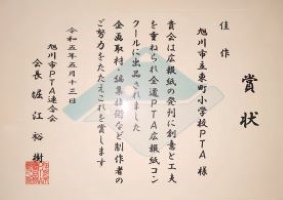 賞状
佳作
旭川市立東町小学校PTA 様
貴会は広報紙の発刊に創意と工夫
を重ねられ全道PTA広報紙コン
クールに出品されました
企画取材・編集技術など制作者の
ご努力をたたえこれを賞します
令和五年五月十三日
旭川市PTA連合会
会長 堀江裕樹